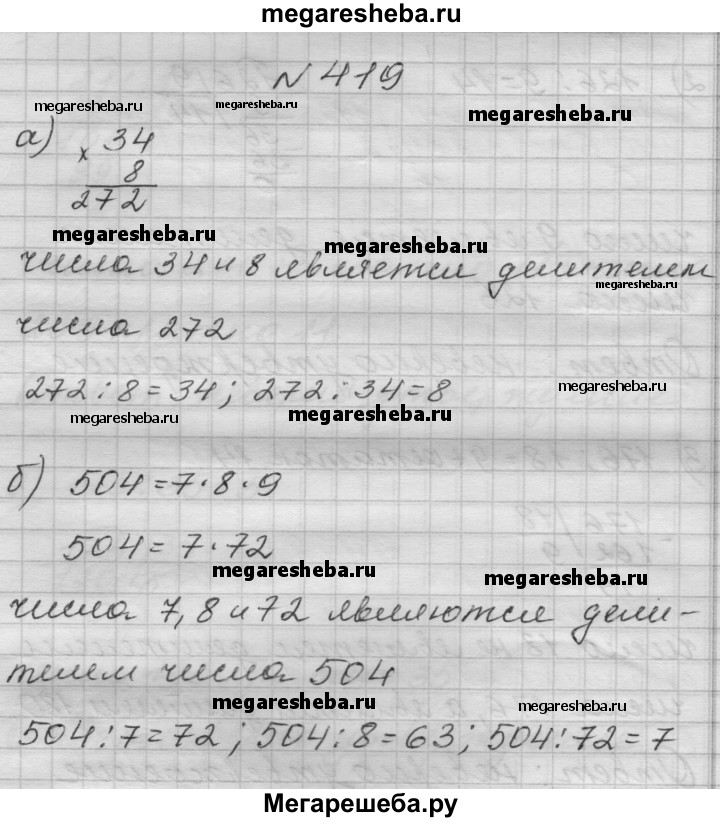 megaresheba.ru
№ 419
megaresheba.ru megaresheba.ru megaresheba.ru
а) х 34
8
272
megaresheba.ru megaresheba.ru
числа 34 и 8 является делителем
megaresheba.ru
числа 272
272 : 8 = 34 ; 272 : 34 = 8
megaresheba.ru megaresheba.ru megaresheba.ru
б) 504 = 7 · 8 · 9
504 = 7 · 72
megaresheba.ru megaresheba.ru
числа 7, 8 и 72 являются дели-
телем числа 504
megaresheba.ru megaresheba.ru
504 : 7 = 72 ; 504 : 8 = 63 ; 504 : 72 = 7
Мегарешеба.ру